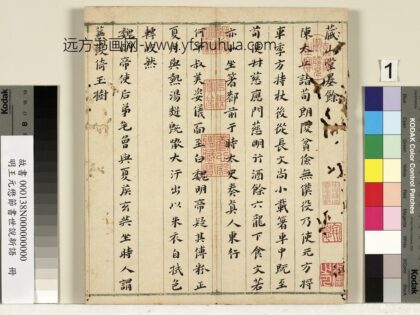 远方书画网-www.yfshuhua.com
蔵山堂墨餘
陳太丘詣荀朗陵貧儉無僕役乃使元方將
車季方持杖後從長文尚小載箸車中既至
荀使叔慈應門慈明行酒餘六龍下食文若
亦小坐箸郄前于時太史奏真人東行
何叔美姿儀面至白魏明帝疑其傅粉正
夏月與熱湯麪既噉大汗出以朱衣自拭色
轉皎然
魏明帝使后弟毛曾與夏侯玄共坐時人謂
蒹葭倚玉樹
故書 000138N000000000
明王元懋節書世說新語 冊
1
Kodak
KODAK Color Control Patches
Kodak